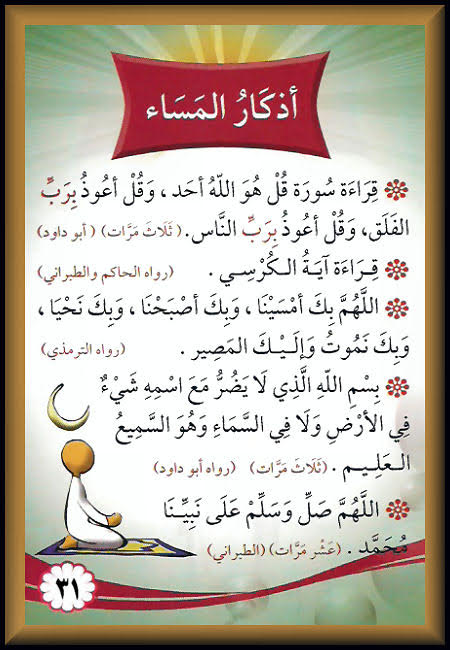 أذكَارُ المَسَاء
قِرَاءَة سُورَة قُلْ هُوَ اللّهُ أَحَد ، وَقُلْ أَعُوذُ بِرَبِّ
الفَلَق، وَقُلْ أَعُوذُ بِرَبِّ النَّاس. (ثَلَاثَ مَرَّات) (أبو داود)
قِـرَاءَة آيَـةُ الـكُـرْسِـي . (رواه الحاكم والطبراني)
اللَّهُمَّ بِكَ أَمْسَيْنَا ، وَبِكَ أَصْبَحْنَا ، وَبِكَ نَحْيَا ،
وَبِكَ نَمُوتُ وَإِلَـيْـكَ المَصِير . (رواه الترمذي)
بِسْمِ اللّهِ الَّذِي لَا يَضُرُّ مَعَ اسْمِهِ شَيْءٌ
فِي الأَرْضِ وَلَا فِي السَّمَاءِ وَهُوَ السَّمِيعُ
الـعَـلِـيـم . (ثَلَاثَ مَرَّات) (رواه أبو داود)
اللَّهُمَّ صَلِّ وَسَلِّمْ عَلَى نَبِيِّـنَا
مُحَمَّد . (عَشْر مَرَّات) (الطبراني)
٣١